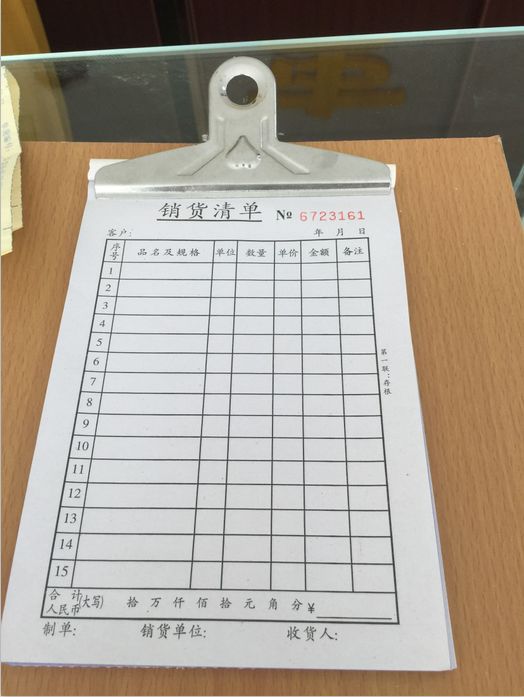 销货清单 № 6723161
客户: 年 月 日
序号 品名及规格 单位 数量 单价 金额 备注
1
2
3
4
5
6
7
8
9
10
11
12
13
14
15
第一联:存根
合计人民币(大写) 拾 万 仟 佰 拾 元 角 分 ¥
制单: 销货单位: 收货人: